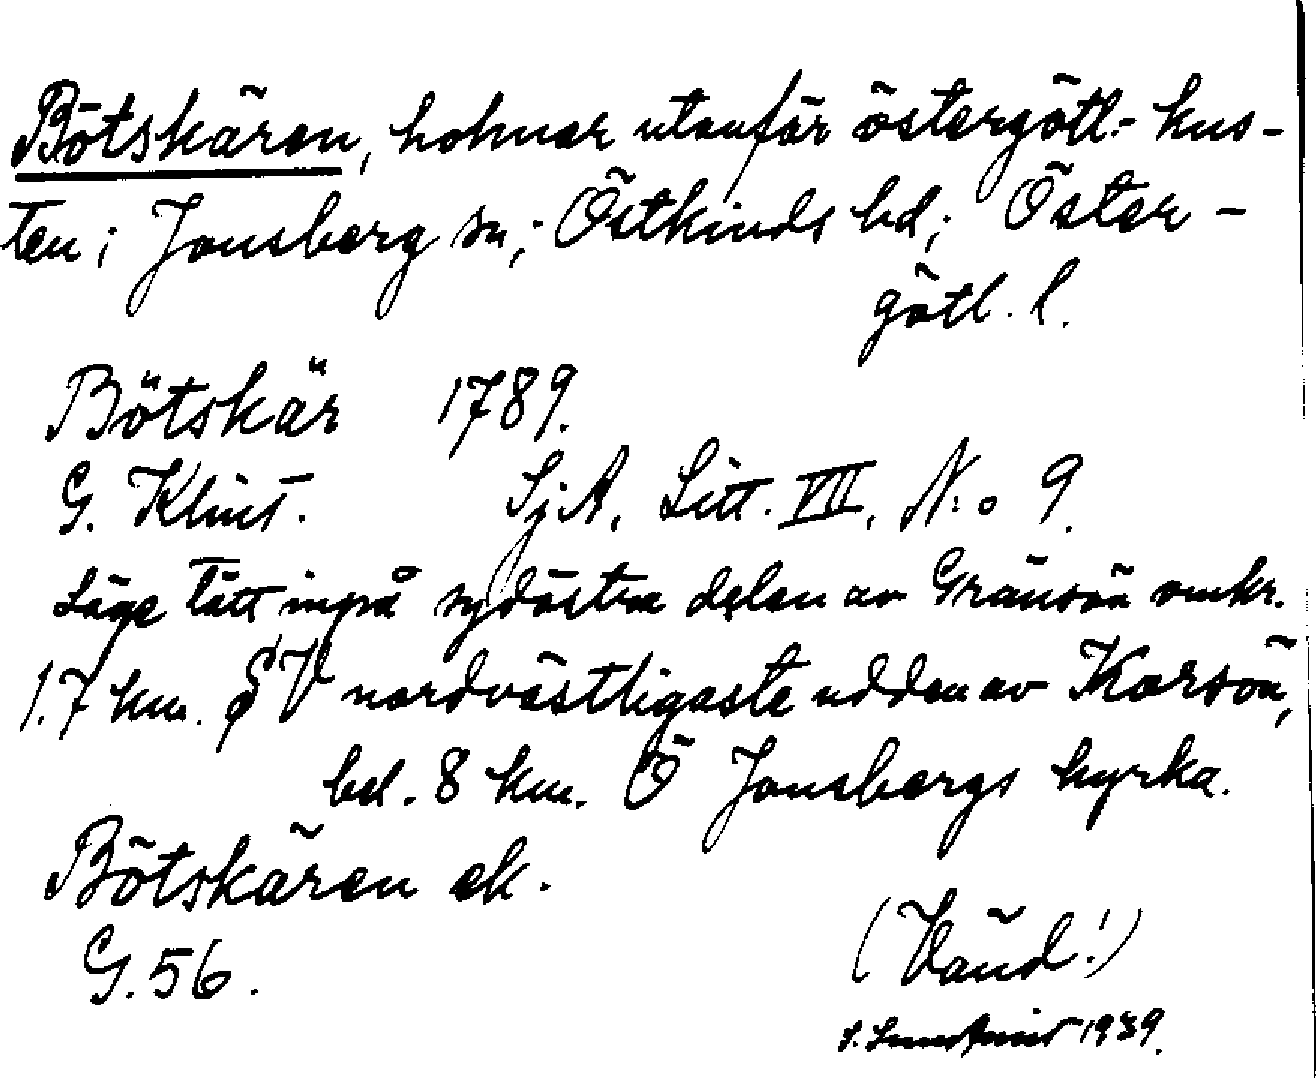 Bötskären, holmar utanför östergötl:s kus-
ten i Jonsberg sn, Östkinds hd, Öster-
götl. l.
Bötskär 1789.
G. Klint. Sj.A. Litt. VII, N:o 9.
Läge tätt inpå sydöstra delen av Gränsön omkr.
1.7 km. SV nordvästligaste udden av Korsön,
bel. 8 km. Ö Jonsbergs kyrka.
Bötskären ek.
G.56.
(Vänd!)
1939.